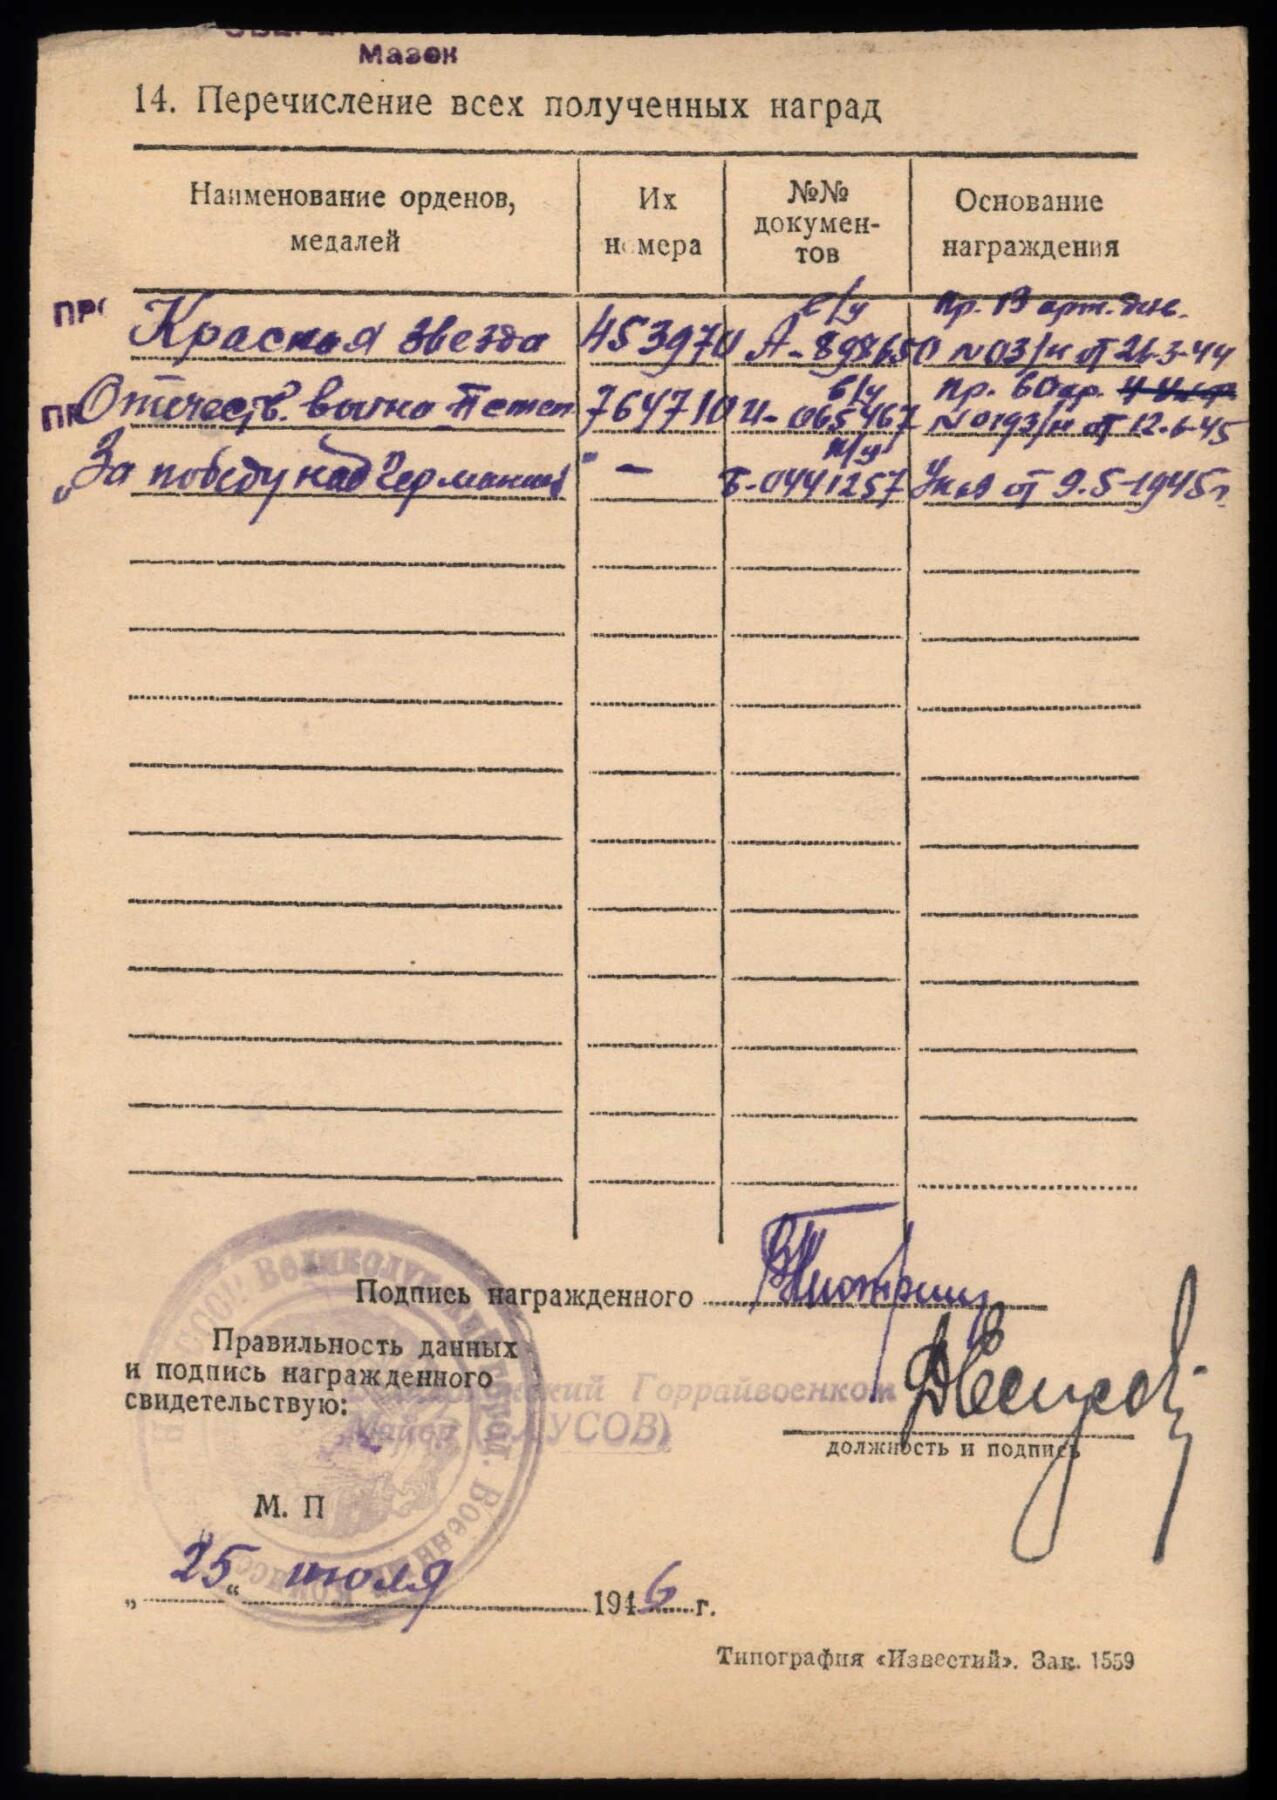 Мазок
14. Перечисление всех полученных наград
Наименование орденов, медалей
Их номера
№№ докумен-
тов
Основание награждения
ПР
Красная звезда 453970 А-898650 Пр. 19 арт. див. №03/н от 26-3-44
Отечеств. война II степ 764710 И-065467 Пр. 60 №0193/н от 12.6-45
„За победу над Германией" — Б-0441257 Указ от 9.5-1945г.
Подпись награжденного
Правильность данных
и подпись награжденного
свидетельствую:
Горрайвоенком
Майор УСОВ)
должность и подпись
М. П
„25“ июля 1946 г.
Типография «Известий». Зак. 1559